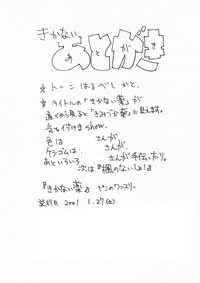 きかない
あとがき
* トーンはるべしかと。
* タイトルの「きかない薬」が
遠くから見ると「きみづか薬」に見えます。
気を付けませshow.
色は さんが
ケシゴムは: さんが、
あといろいろ さんが手伝ったり。
次は『楓のないしょ!』
『きかない薬』 ピンのワンスリー
発行日 2001 1.27(土)